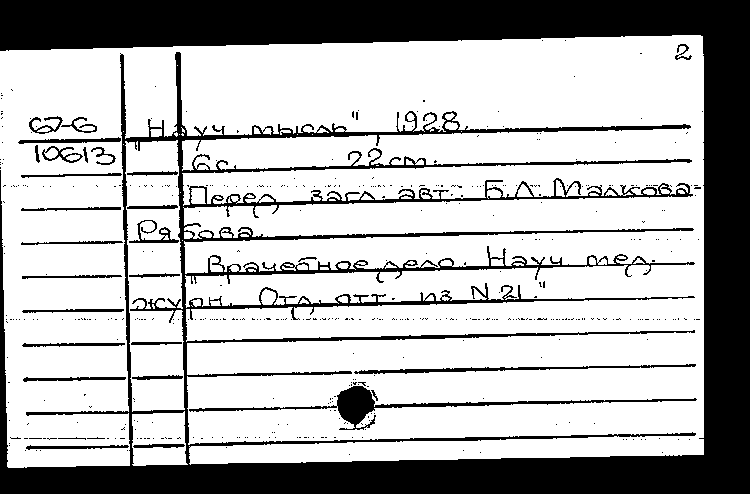 2
67-6 "Науч. мысль", 1928.
10613 6 с. 22 см.
Перед загл. авт.: Б.Л. Малкова-
Рябова.
"Врачебное дело. Науч. мед.
журн. Отд. отт. из N 21."